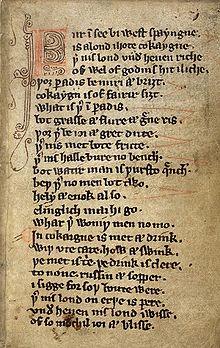 Fur in see bi west spayngne
is a lond ihote cokaygne
þ̛ nis lond vnd̛ heuen riche
of wel of godnis hit iliche
þoȝ paradis be miri ⁊ briȝt
cokaygn is of fairir siȝt
what is þ̛ in p̛adis
bot grasse ⁊ flure ⁊ g̛ne ris
þoȝ þ̛ be ioi ⁊ gret dute
þ̛ nis met bote frute
þ̛ nis halle bure no bench
bot watir man is þursto q̛nch
beþ þ̛ no men bot two
hely ⁊ enok also
elinglich mai hi go
whar þ̛ woniþ men no mo
in cokaigne is met ⁊ drink
wiþ vte care how ⁊ swink
þe met is trie þe drink is clere
to none russin ⁊ sopper
i sigge for soþ boute were
þ̛ nis lond on erþe is pere
vnd̛ heuen nis lond iwisse
of so mochil ioi ⁊ blisse